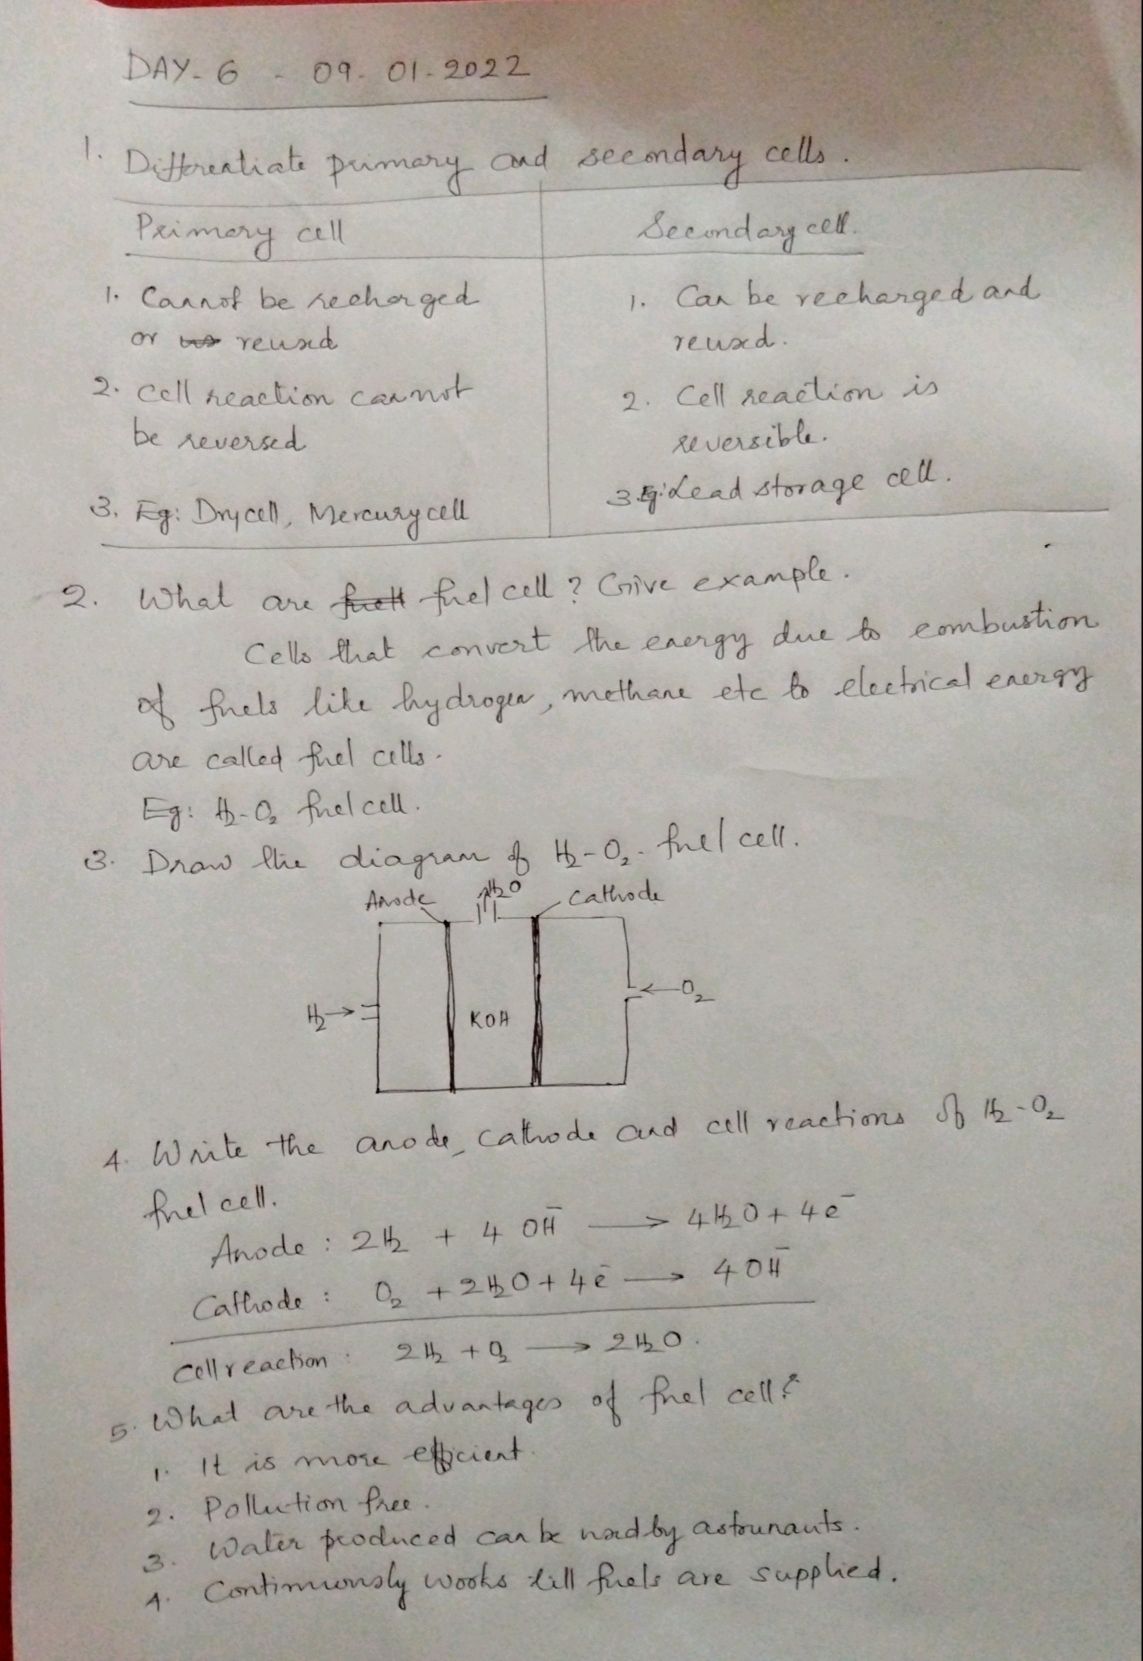 DAY-6 - 09-01-2022
1. Differentiate primary and secondary cells.
Primary cell
Secondary cell.
1. Cannot be recharged
or reused
2. Cell reaction cannot
be reversed
3. Eg: Dry cell, Mercury cell
1. Can be recharged and
reused.
2. Cell reaction is
reversible.
3. Eg: Lead storage cell.
2. What are fuel cell? Give example.
Cells that convert the energy due to combustion
of fuels like hydrogen, methane etc to electrical energy
are called fuel cells.
Eg: H₂-O₂ fuel cell.
3. Draw the diagram of H₂-O₂- fuel cell.
Anode H₂O Cathode
H₂→ KOH ←O₂
4. Write the anode, cathode and cell reactions of H₂-O₂
fuel cell.
Anode : 2H₂ + 4 OH⁻ ⟶ 4H₂O + 4e⁻
Cathode : O₂ + 2H₂O + 4e⁻ ⟶ 4OH⁻
Cell reaction : 2H₂ + O₂ ⟶ 2H₂O.
5. What are the advantages of fuel cell?
1. It is more efficient.
2. Pollution free.
3. Water produced can be used by astrunauts.
4. Continuously works till fuels are supplied.